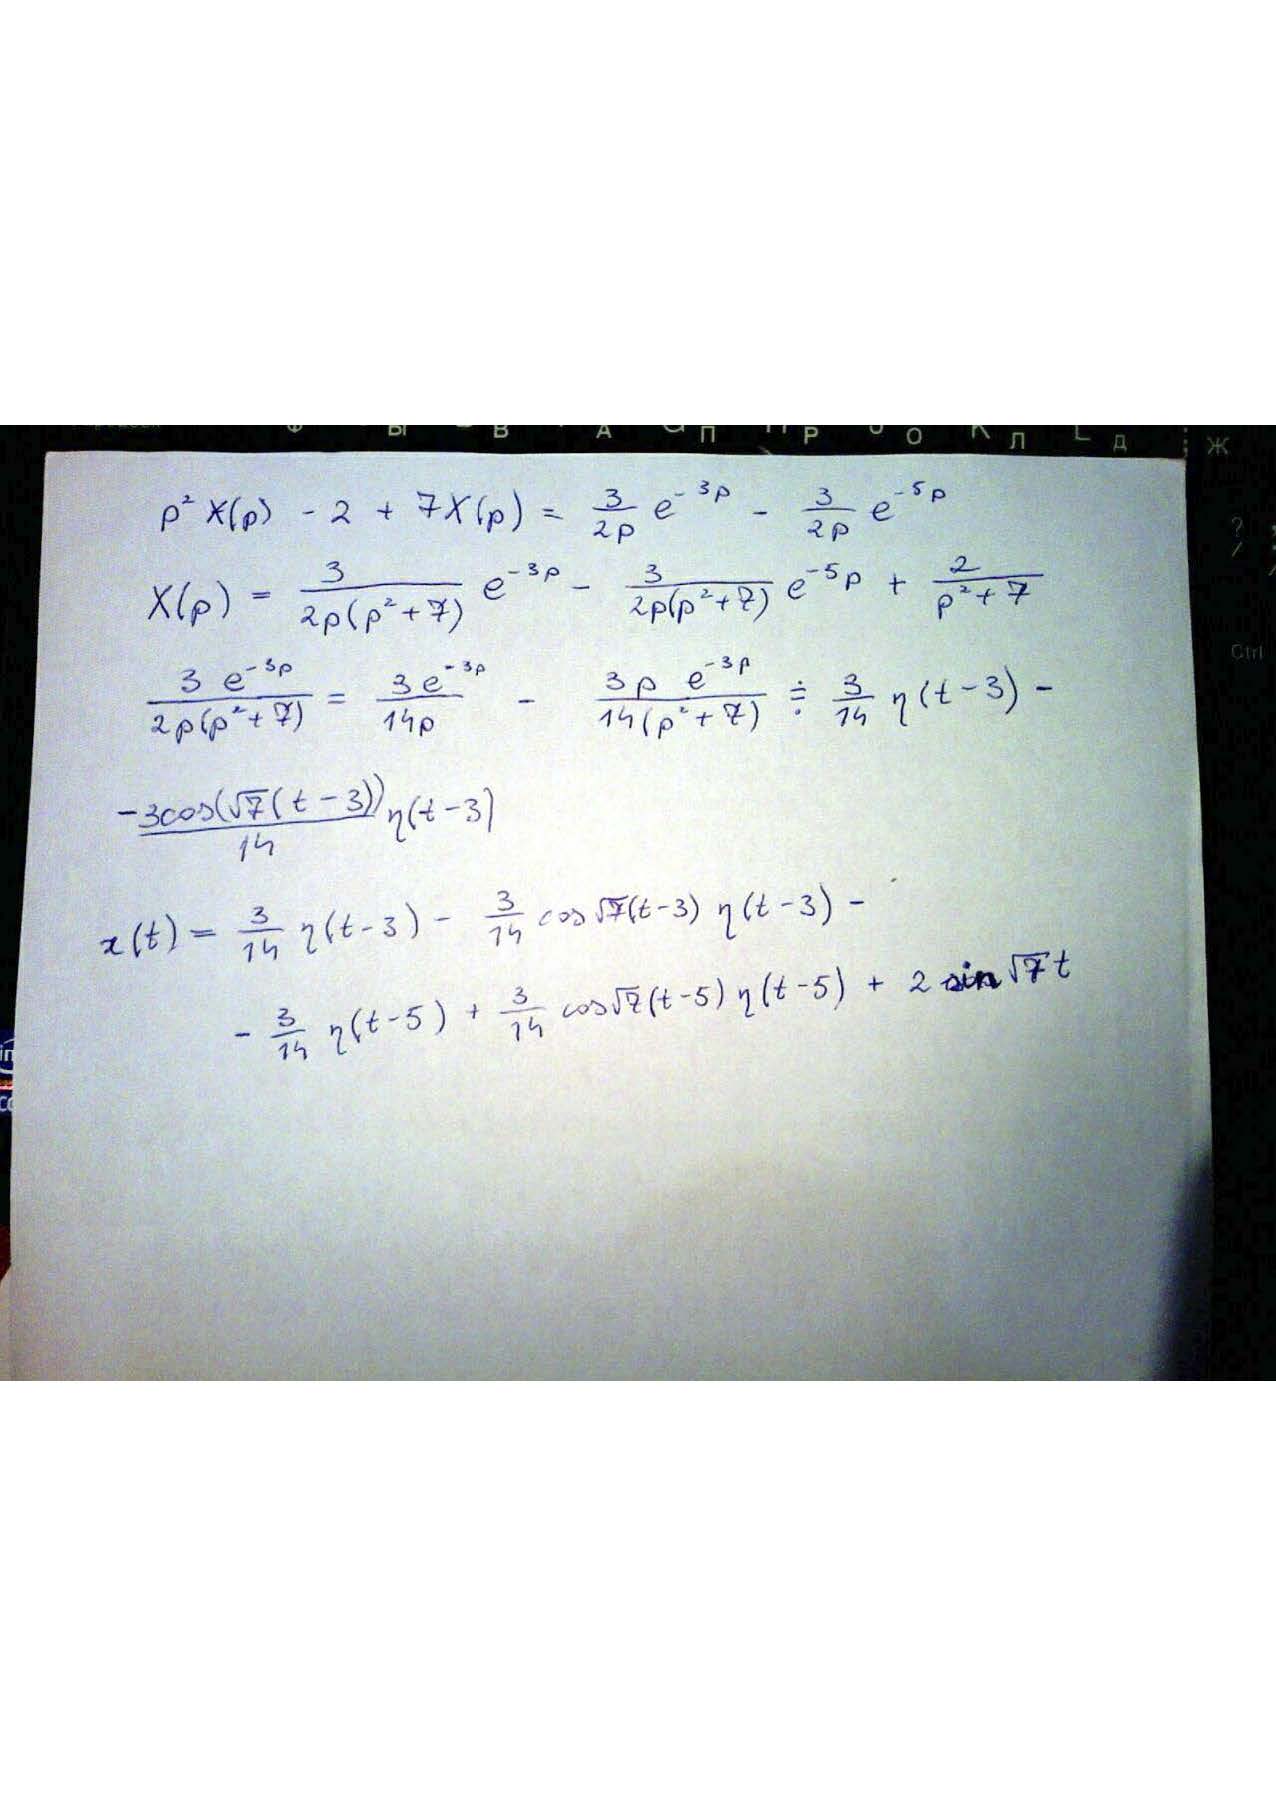 Ф Ы В А П Р О Л Д Ж
p² X(p) - 2 + 7X(p) = \frac{3}{2p} e^{-3p} - \frac{3}{2p} e^{-5p}
X(p) = \frac{3}{2p(p²+7)} e^{-3p} - \frac{3}{2p(p²+7)} e^{-5p} + \frac{2}{p²+7}
\frac{3 e^{-3p}}{2p(p²+7)} = \frac{3e^{-3p}}{14p} - \frac{3p e^{-3p}}{14(p²+7)} ≑ \frac{3}{14} η(t-3) -
- \frac{3cos(√7(t-3))}{14} η(t-3)
x(t) = \frac{3}{14} η(t-3) - \frac{3}{14} cos √7(t-3) η(t-3) -
- \frac{3}{14} η(t-5) + \frac{3}{14} cos√7(t-5) η(t-5) + 2 sin √7 t
?
/
Ctrl